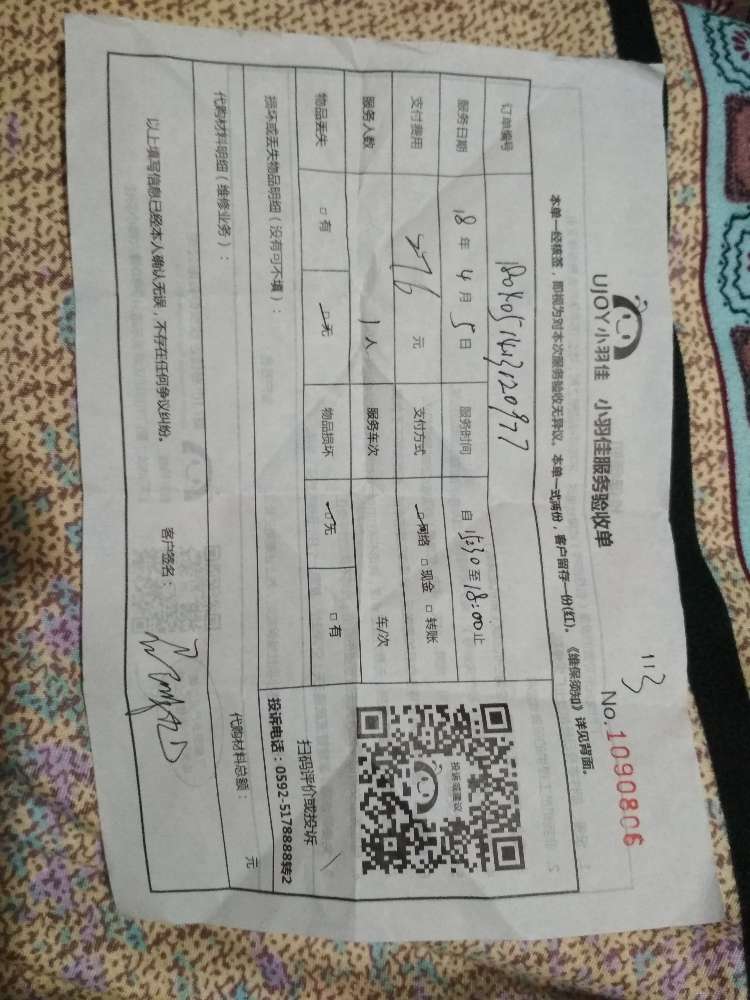 UJOY小羽佳 小羽佳服务验收单
113
No.1090806
本单一经核签，即视为对本次服务验收无异议。本单一式两份，客户留存一份(红)。《维保须知》详见背面。
订单编号
服务日期 18 年 4 月 5 日 服务时间 自 15:30 至 18:00 止
支付费用 276 元 支付方式 网络 □ 现金 □ 转账
服务人数 1 人 服务车次 车/次
物品丢失 □ 有 □ 无 物品损坏 □ 无 □ 有
损坏或丢失物品明细（没有可不填）：
代购材料明细（维修业务）： 代购材料总额： 元
以上填写信息已经本人确认无误，不存在任何争议纠纷。 客户签名：
投诉或建议
扫码评价或投诉
投诉电话：0592-5178888转2